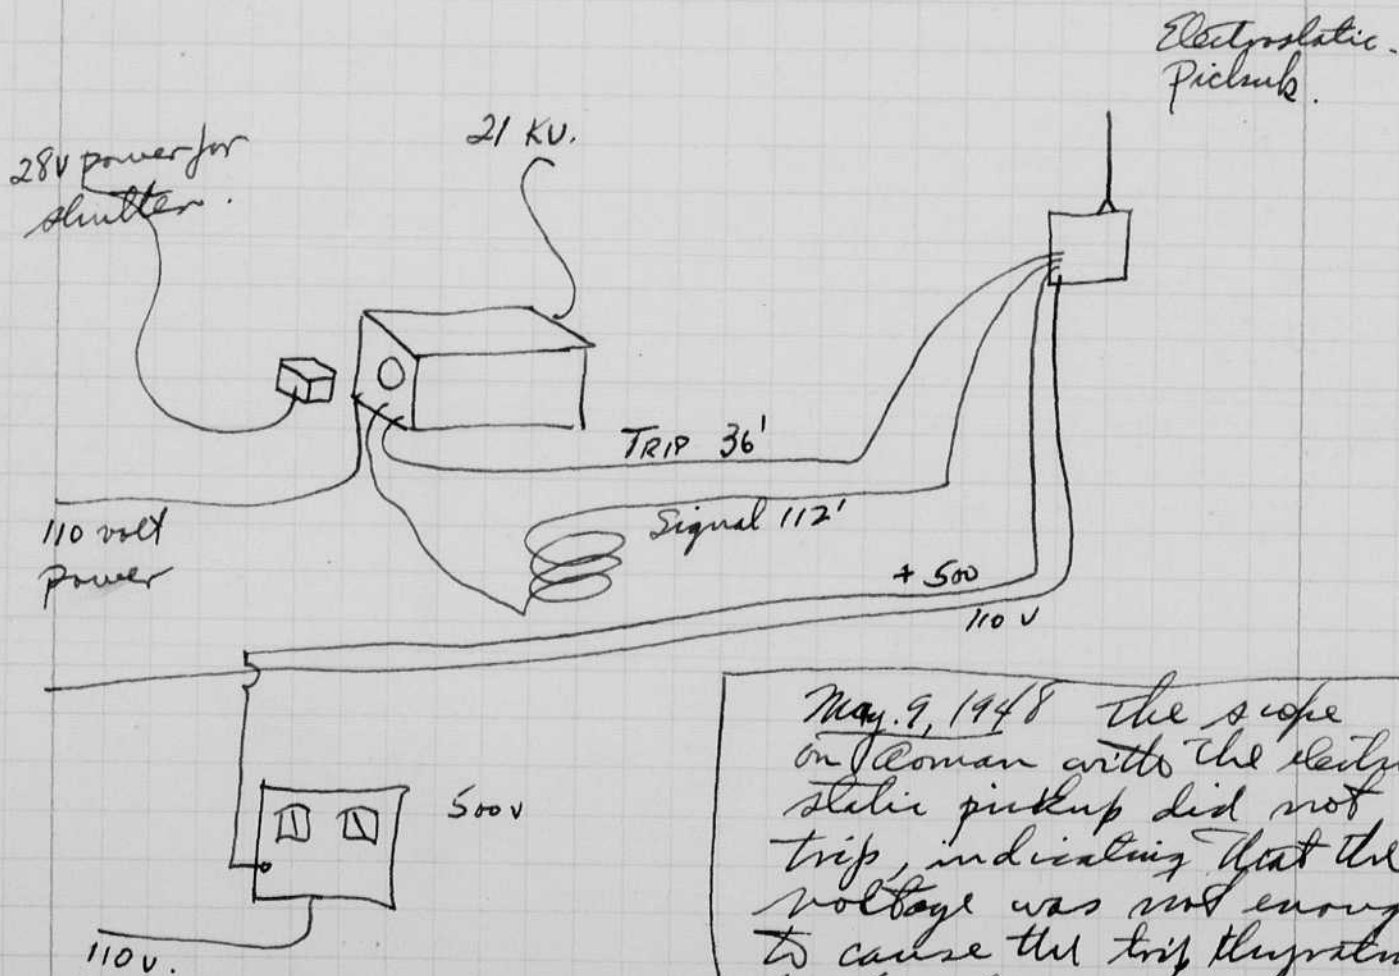 Electrostatic.
Pickup.
28V power for
shutter.
21 KV.
TRIP 36'
Signal 112'
110 volt
power
+ 500
110 V
500 v
110 v.
May. 9, 1948 The scope
on Roman with the electro
static pickup did not
trip, indicating that the
voltage was not enoug
to cause the trip thyratr